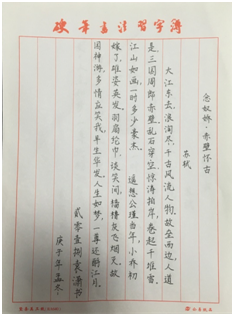 硬筆書法習字簿
念奴娇·赤壁怀古
苏轼
大江东去,浪淘尽,千古风流人物。故垒西边,人道
是,三国周郎赤壁。乱石穿空,惊涛拍岸,卷起千堆雪。
江山如画,一时多少豪杰。 遥想公瑾当年,小乔初
嫁了,雄姿英发。羽扇纶巾,谈笑间,樯橹灰飞烟灭。故
国神游,多情应笑我,早生华发。人生如梦,一尊还酹江月。
贰零壹捌袁潇书
庚子年孟冬